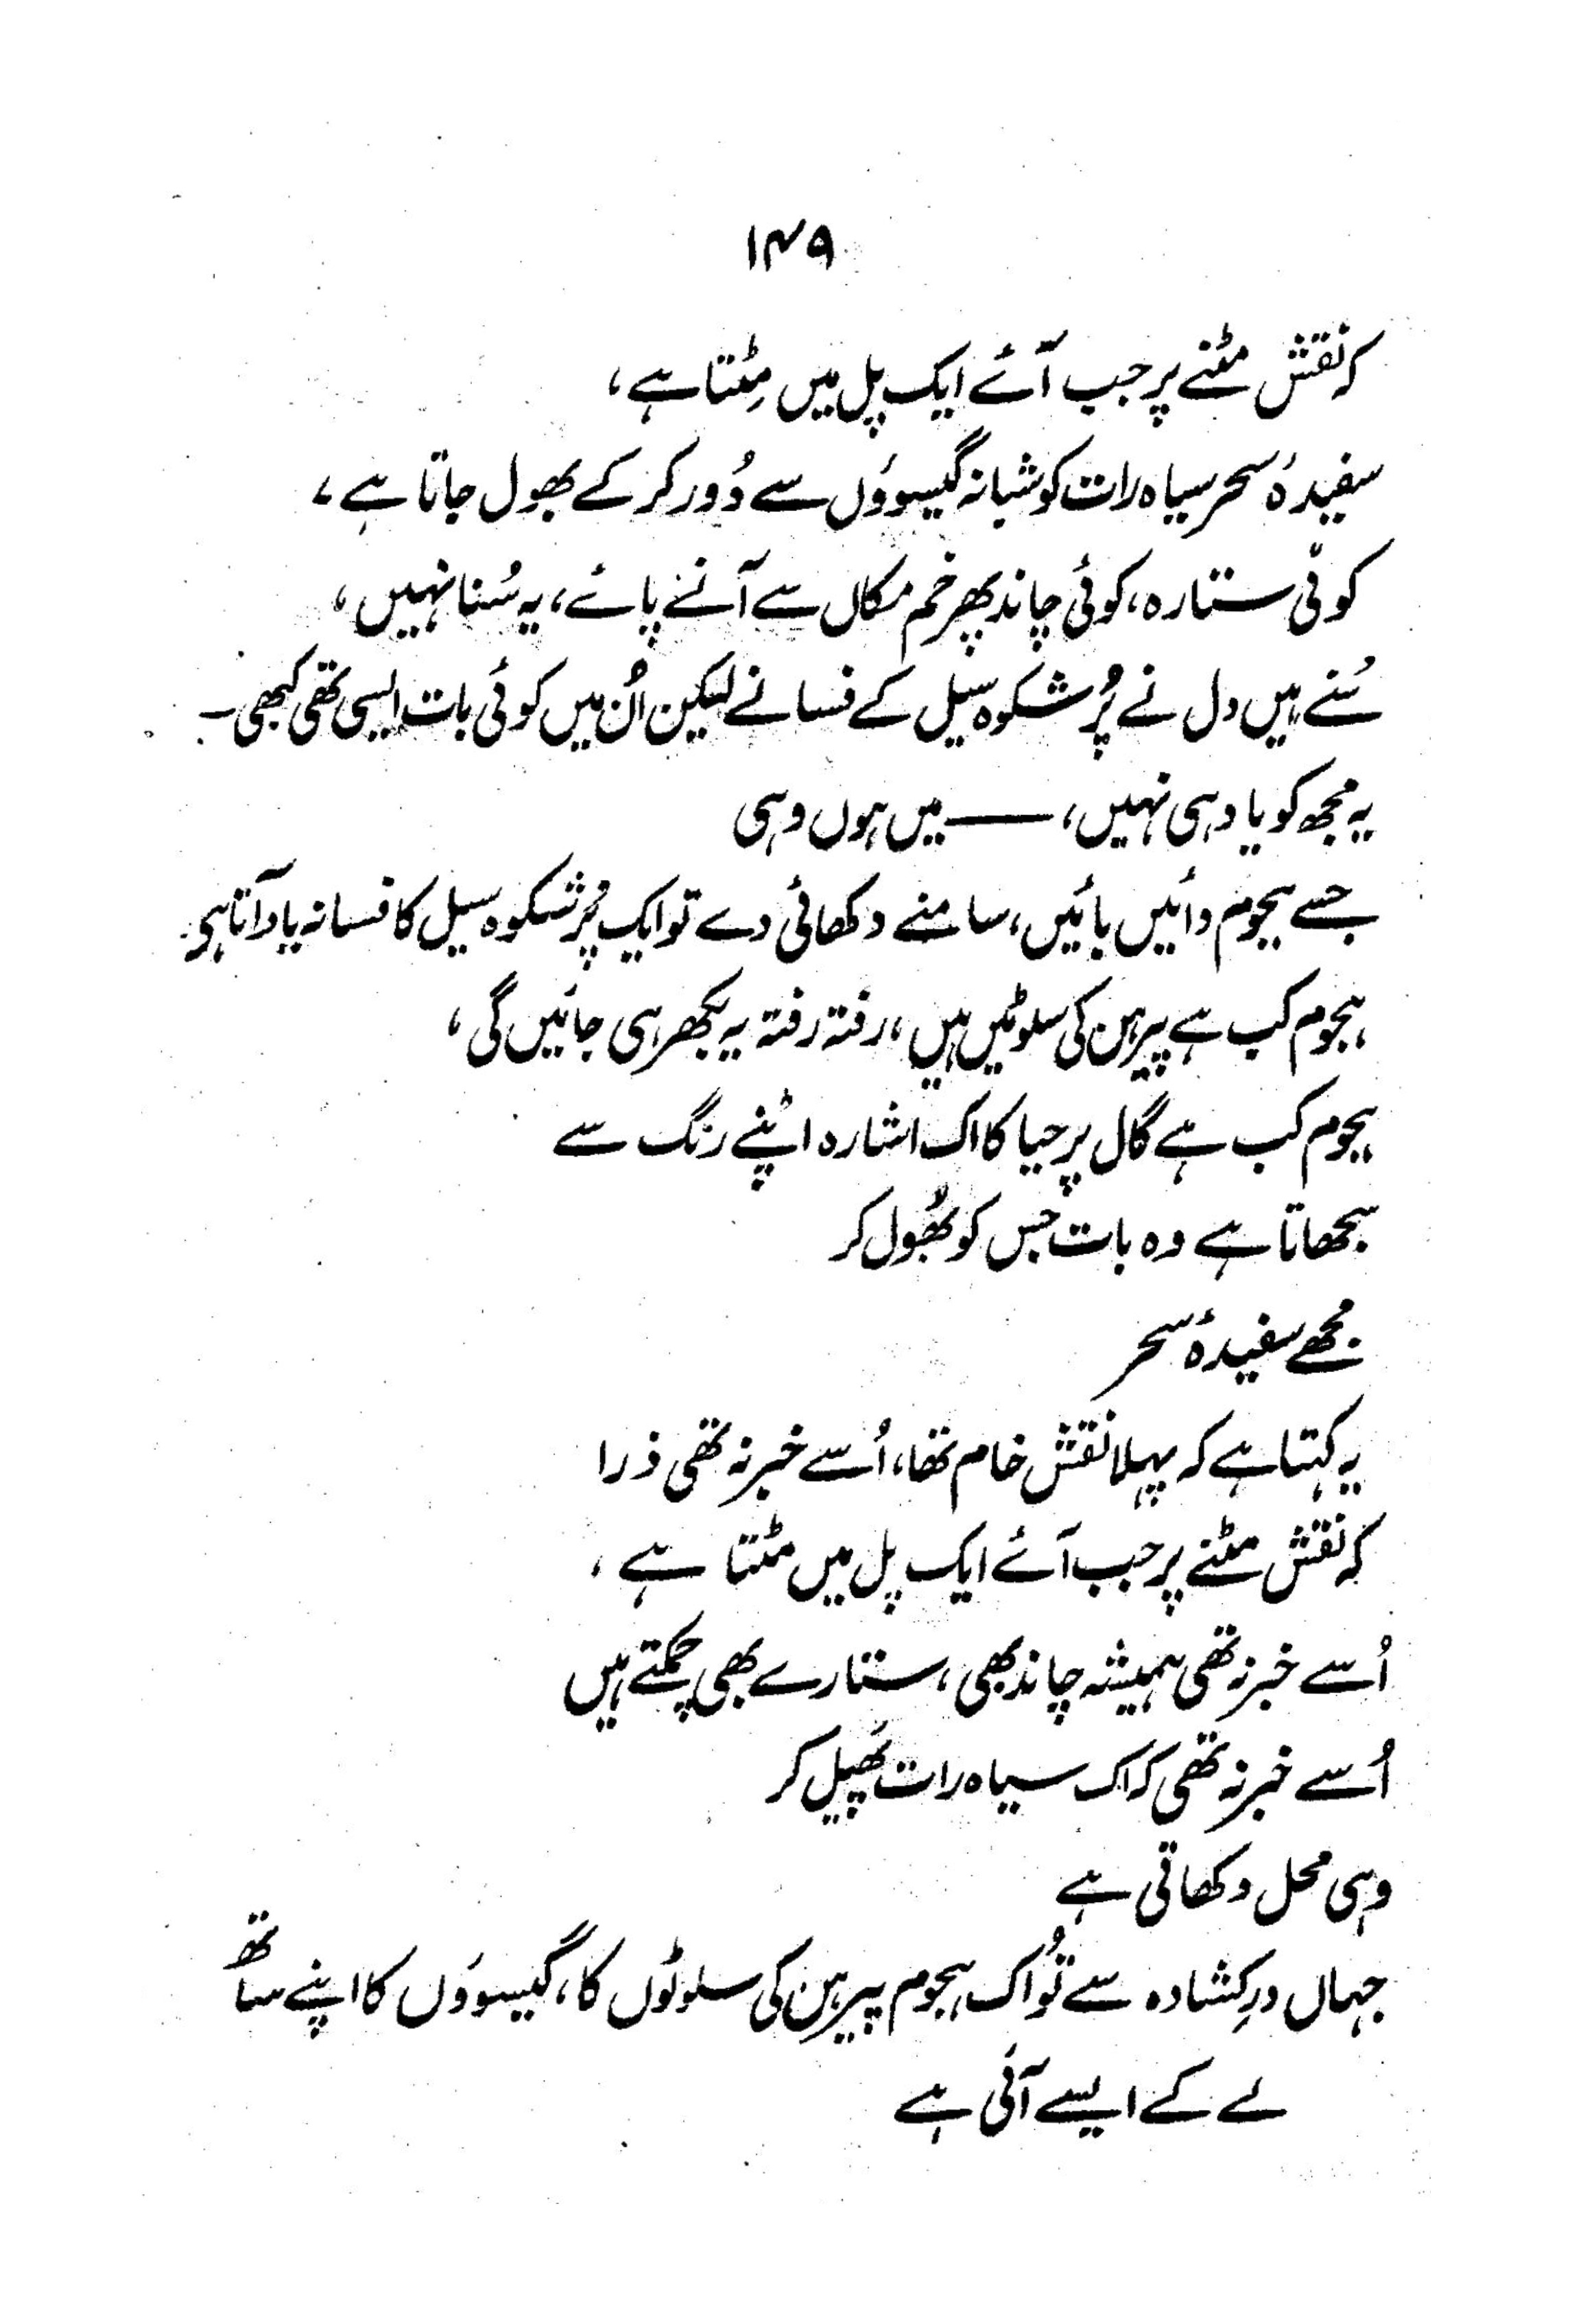 ۱۴۹
کہ نقش مٹنے پر جب آئے ایک پل میں مِٹتا ہے،
سفیدۂ سحر سیاہ رات کو شبانہ گیسوؤں سے دُور کر کے بھول جاتا ہے،
کوئی ستارہ، کوئی چاند پھر خم مکاں سے آنے پائے، یہ سُنا نہیں،
سُنے ہیں دل نے پُر شکوہ سیل کے فسانے لیکن اُن میں کوئی بات ایسی تھی کبھی۔
یہ مجھ کو یاد ہی نہیں، —— میں ہوں وہی
جسے ہجوم دائیں بائیں، سامنے دکھائی دے تو ایک پُر شکوہ سیل کا فسانہ یاد آتا ہے۔
ہجوم کب ہے پیرہن کی سلوٹیں ہیں، رفتہ رفتہ یہ بکھر ہی جائیں گی،
ہجوم کب ہے گال پر حیا کا اک اشارہ اپنے رنگ سے
سجھاتا ہے وہ بات جس کو بھُول کر
مجھے سفیدۂ سحر
یہ کہتا ہے کہ پہلا نقش خام تھا، اُسے خبر نہ تھی ذرا
کہ نقش مٹنے پر جب آئے ایک پل میں مٹتا ہے،
اُسے خبر نہ تھی ہمیشہ چاند بھی، ستارے بھی چمکتے ہیں
اُسے خبر نہ تھی کہ اک سیاہ رات پھَیل کر
وہی محل دکھاتی ہے
جہاں درِ کشادہ سے تُو اک ہجوم پیرہن کی سلوٹوں کا، گیسوؤں کا اپنے ساتھ
لے کے ایسے آئی ہے